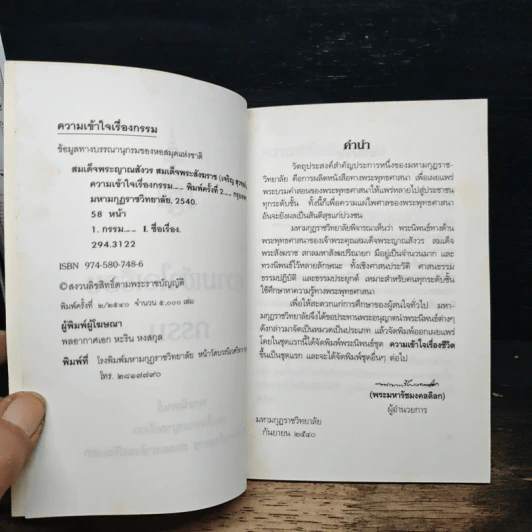 ความเข้าใจเรื่องกรรม
ข้อมูลทางบรรณานุกรมของหอสมุดแห่งชาติ
สมเด็จพระญาณสังวร สมเด็จพระสังฆราช (เจริญ
ความเข้าใจเรื่องกรรม.-- พิมพ์ครั้งที่ 2.--
มหามกุฏราชวิทยาลัย, 2540.
58 หน้า
1. กรรม.-- I. ชื่อเรื่อง.
294.3122
ISBN 974-580-748-6
© สงวนลิขสิทธิ์ตามพระราชบัญญัติ
พิมพ์ครั้งที่ ๒/๒๕๔๐ จำนวน ๕,๐๐๐ เล่ม
ผู้พิมพ์ผู้โฆษณา
พลอากาศเอก หะริน หงสกุล
พิมพ์ที่ โรงพิมพ์มหามกุฏราชวิทยาลัย หน้าวัดบวรนิเวศวิหาร
โทร. ๒๘๑๗๘๙๐
คำนำ
วัตถุประสงค์สำคัญประการหนึ่งของมหามกุฏราช-
วิทยาลัย คือการผลิตหนังสือทางพระพุทธศาสนา เพื่อเผยแพร่
พระบรมคำสอนของพระพุทธศาสนาให้แพร่หลายไปสู่ประชาชน
ทุกระดับชั้น ทั้งนี้ก็เพื่อความแผ่ไพศาลของพระพุทธศาสนา
อันจะยังผลเป็นสันติสุขแก่ปวงชน
มหามกุฏราชวิทยาลัยพิจารณาเห็นว่า พระนิพนธ์ทางด้าน
พระพุทธศาสนาของเจ้าพระคุณสมเด็จพระญาณสังวร สมเด็จ
พระสังฆราช สกลมหาสังฆปริณายก มีอยู่เป็นจำนวนมาก และ
ทรงนิพนธ์ไว้หลายลักษณะ ทั้งเชิงศาสนประวัติ ศาสนธรรม
ธรรมปฏิบัติ และธรรมประยุกต์ เหมาะสำหรับคนทุกระดับชั้น
ใช้ศึกษาหาความรู้ทางพระพุทธศาสนา
เพื่อให้สะดวกแก่การศึกษาของผู้สนใจทั่วไป มหา-
มกุฏราชวิทยาลัยจึงได้ขอประทานพระอนุญาตนำพระนิพนธ์ต่างๆ
ดังกล่าวมาจัดเป็นหมวดเป็นประเภท แล้วจัดพิมพ์ออกเผยแพร่
โดยในชุดแรกนี้ได้จัดพิมพ์พระนิพนธ์ชุด ความเข้าใจเรื่องชีวิต
ขึ้นเป็นชุดแรก และจะได้จัดพิมพ์ชุดอื่นๆ ต่อไป
(พระมหารัชมงคลดิลก)
ผู้อำนวยการ
มหามกุฏราชวิทยาลัย
กันยายน ๒๕๔๐